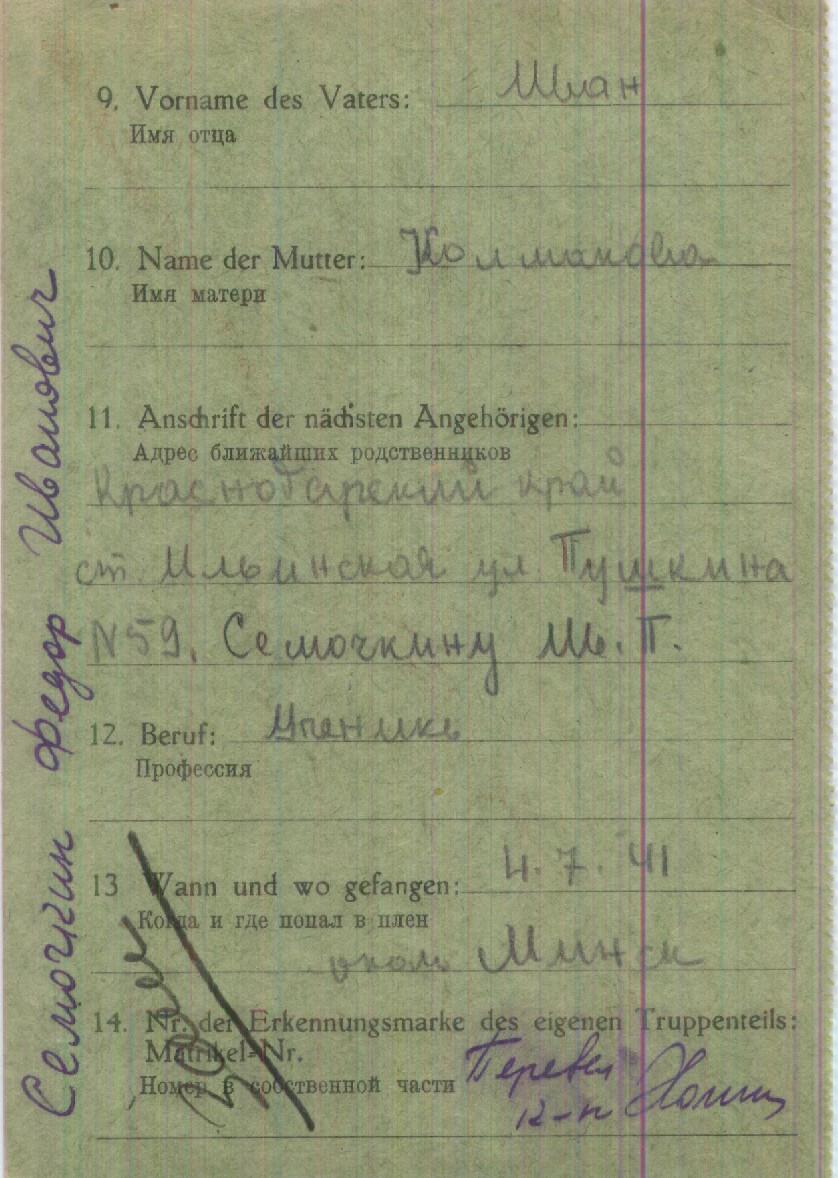 9. Vorname des Vaters: Иван
Имя отца
10. Name der Mutter: Колмакова
Имя матери
11. Anschrift der nächsten Angehörigen:
Адрес ближайших родственников
Краснодарский край
ст Ильинская ул. Пушкина
N59. Семочкину Ив. П.
12. Beruf: Ученик
Профессия
13 Wann und wo gefangen: 4.7.41
Когда и где попал в плен
около Минск
14. Nr. der Erkennungsmarke des eigenen Truppenteils:
Matrikel-Nr.
Номер в собственной части
Перевел
Семочкин Федор Иванович